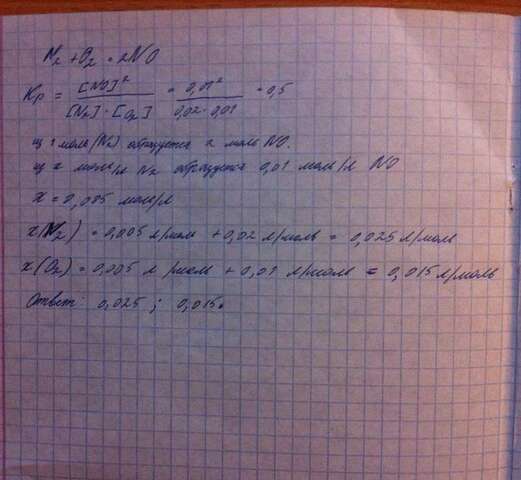 N₂ + O₂ = 2NO
Kp = [NO]² / [N₂]·[O₂] = 0,01² / 0,02·0,01 = 0,5
из 1 моль (N₂) образуется 2 моль NO.
из x моль/л N₂ образуется 0,01 моль/л NO
x = 0,005 моль/л
x(N₂) = 0,005 л/моль + 0,02 л/моль = 0,025 л/моль
x(O₂) = 0,005 л/моль + 0,01 л/моль = 0,015 л/моль
Ответ: 0,025 ; 0,015.